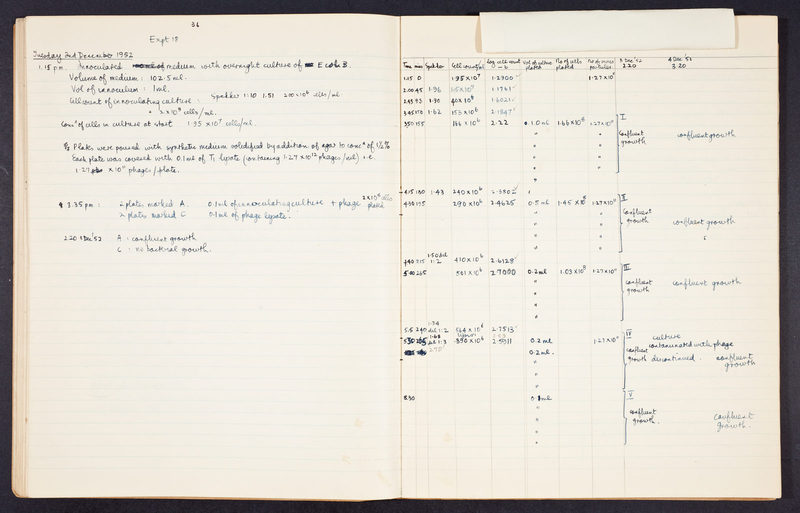 36
Expt 18
Tuesday 2nd December 1952
1.15 pm. Innoculated medium with overnight culture of E coli B.
Volume of medium: 102.5 ml.
Vol of innoculum: 1 ml.
Cell count of innoculating culture: Spekker 1:10 1.51 200 × 10⁶ cells/ml
∴ 2 × 10⁹ cells/ml.
Concⁿ of cells in culture at start 1.95 × 10⁷ cells/ml.
Plates were poured with synthetic medium solidified by addition of agar to concⁿ of 1½%
Each plate was covered with 0.1 ml of T1 lysate (containing 1.27 × 10¹² phages/ml) i.e.
1.27 × 10¹¹ phages/plate.
3.35 pm: 2 plates marked A. 0.1 ml of innoculating culture + phage 2 × 10⁸ cells plated
2 plates marked C 0.1 ml of phage lysate.
2.20 3 Dec '52 A: confluent growth
C: no bacterial growth.
Time mins Spekker Cell count/ml Log cell count Vol of culture plated No of cells plated No of virus particles 3 Dec '52 2.20 4 Dec '52 3.20
1.15 0 1.95 × 10⁷ 1.2900 1.27 × 10¹¹
2.00 45 1.96 1.5 × 10⁷ 1.1761
2.45 93 1.90 40 × 10⁶ 1.6021
3.45 150 1.62 153 × 10⁶ 2.1847
3.50 155 166 × 10⁶ 2.22 0.1 ml 1.66 × 10⁸ 1.27 × 10¹¹ I confluent growth confluent growth
4.15 180 1.43 240 × 10⁶ 2.3802
4.30 195 290 × 10⁶ 2.4625 0.5 ml 1.45 × 10⁸ 1.27 × 10¹¹ II confluent growth confluent growth
4.40 215 1.50 dil 1:2 410 × 10⁶ 2.6128
5.00 225 501 × 10⁶ 2.7000 0.2 ml 1.03 × 10⁸ 1.27 × 10¹¹ III confluent growth confluent growth
5.15 240 1.34 dil 1:2 564 × 10⁶ 2.7513
5.30 1.68 dil 1:3 390 × 10⁶ 2.5911 0.2 ml 1.27 × 10¹¹ IV culture contaminated with phage
0.2 ml. confluent growth discontinued. confluent growth
5.30 V
confluent growth. confluent growth.